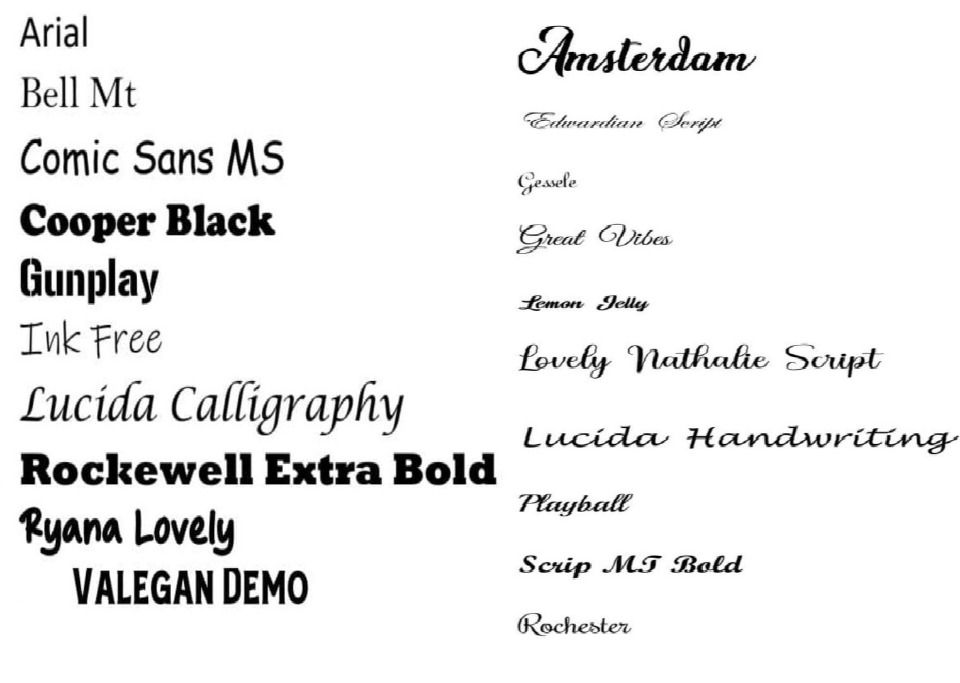 Arial
Bell Mt
Comic Sans MS
Cooper Black
Gunplay
Ink Free
Lucida Calligraphy
Rockewell Extra Bold
Ryana Lovely
VALEGAN DEMO
Amsterdam
Edwardian Script
Gessele
Great Vibes
Lemon Jelly
Lovely Nathalie Script
Lucida Handwriting
Playball
Scrip MT Bold
Rochester